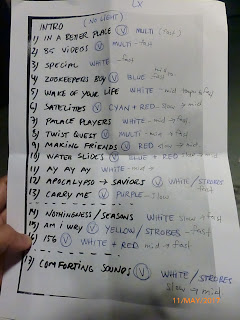 LX
INTRO (NO LIGHT)
1) IN A BETTER PLACE (V) MULTI (fast)
2) 85 VIDEOS (V) MULTI - fast
3) SPECIAL WHITE - fast
4) ZOOKEEPERS BOY (V) BLUE mid to fast
5) WAKE OF YOUR LIFE WHITE - mid tempo & fast
6) SATELLITES (V) CYAN + RED slow → mid
7) PALACE PLAYERS WHITE - mid → fast
8) TWIST QUEST (V) MULTI - mid → fast
9) MAKING FRIENDS (V) RED - slow → mid
10) WATER SLIDES (V) BLUE + RED slow → mid
11) AY AY AY WHITE - mid →
12) APOCALYPSO → SAVIORS (V) WHITE / STROBES fast
13) CARRY ME (V) PURPLE - slow
14) NOTHINGNESS / SEASONS WHITE slow → fast
15) AM I WRY (V) YELLOW / STROBES - fast
16) 156 (V) WHITE + RED mid → fast
17) COMFORTING SOUNDS (V) WHITE / STROBES
slow → mid
11/MAY/2017